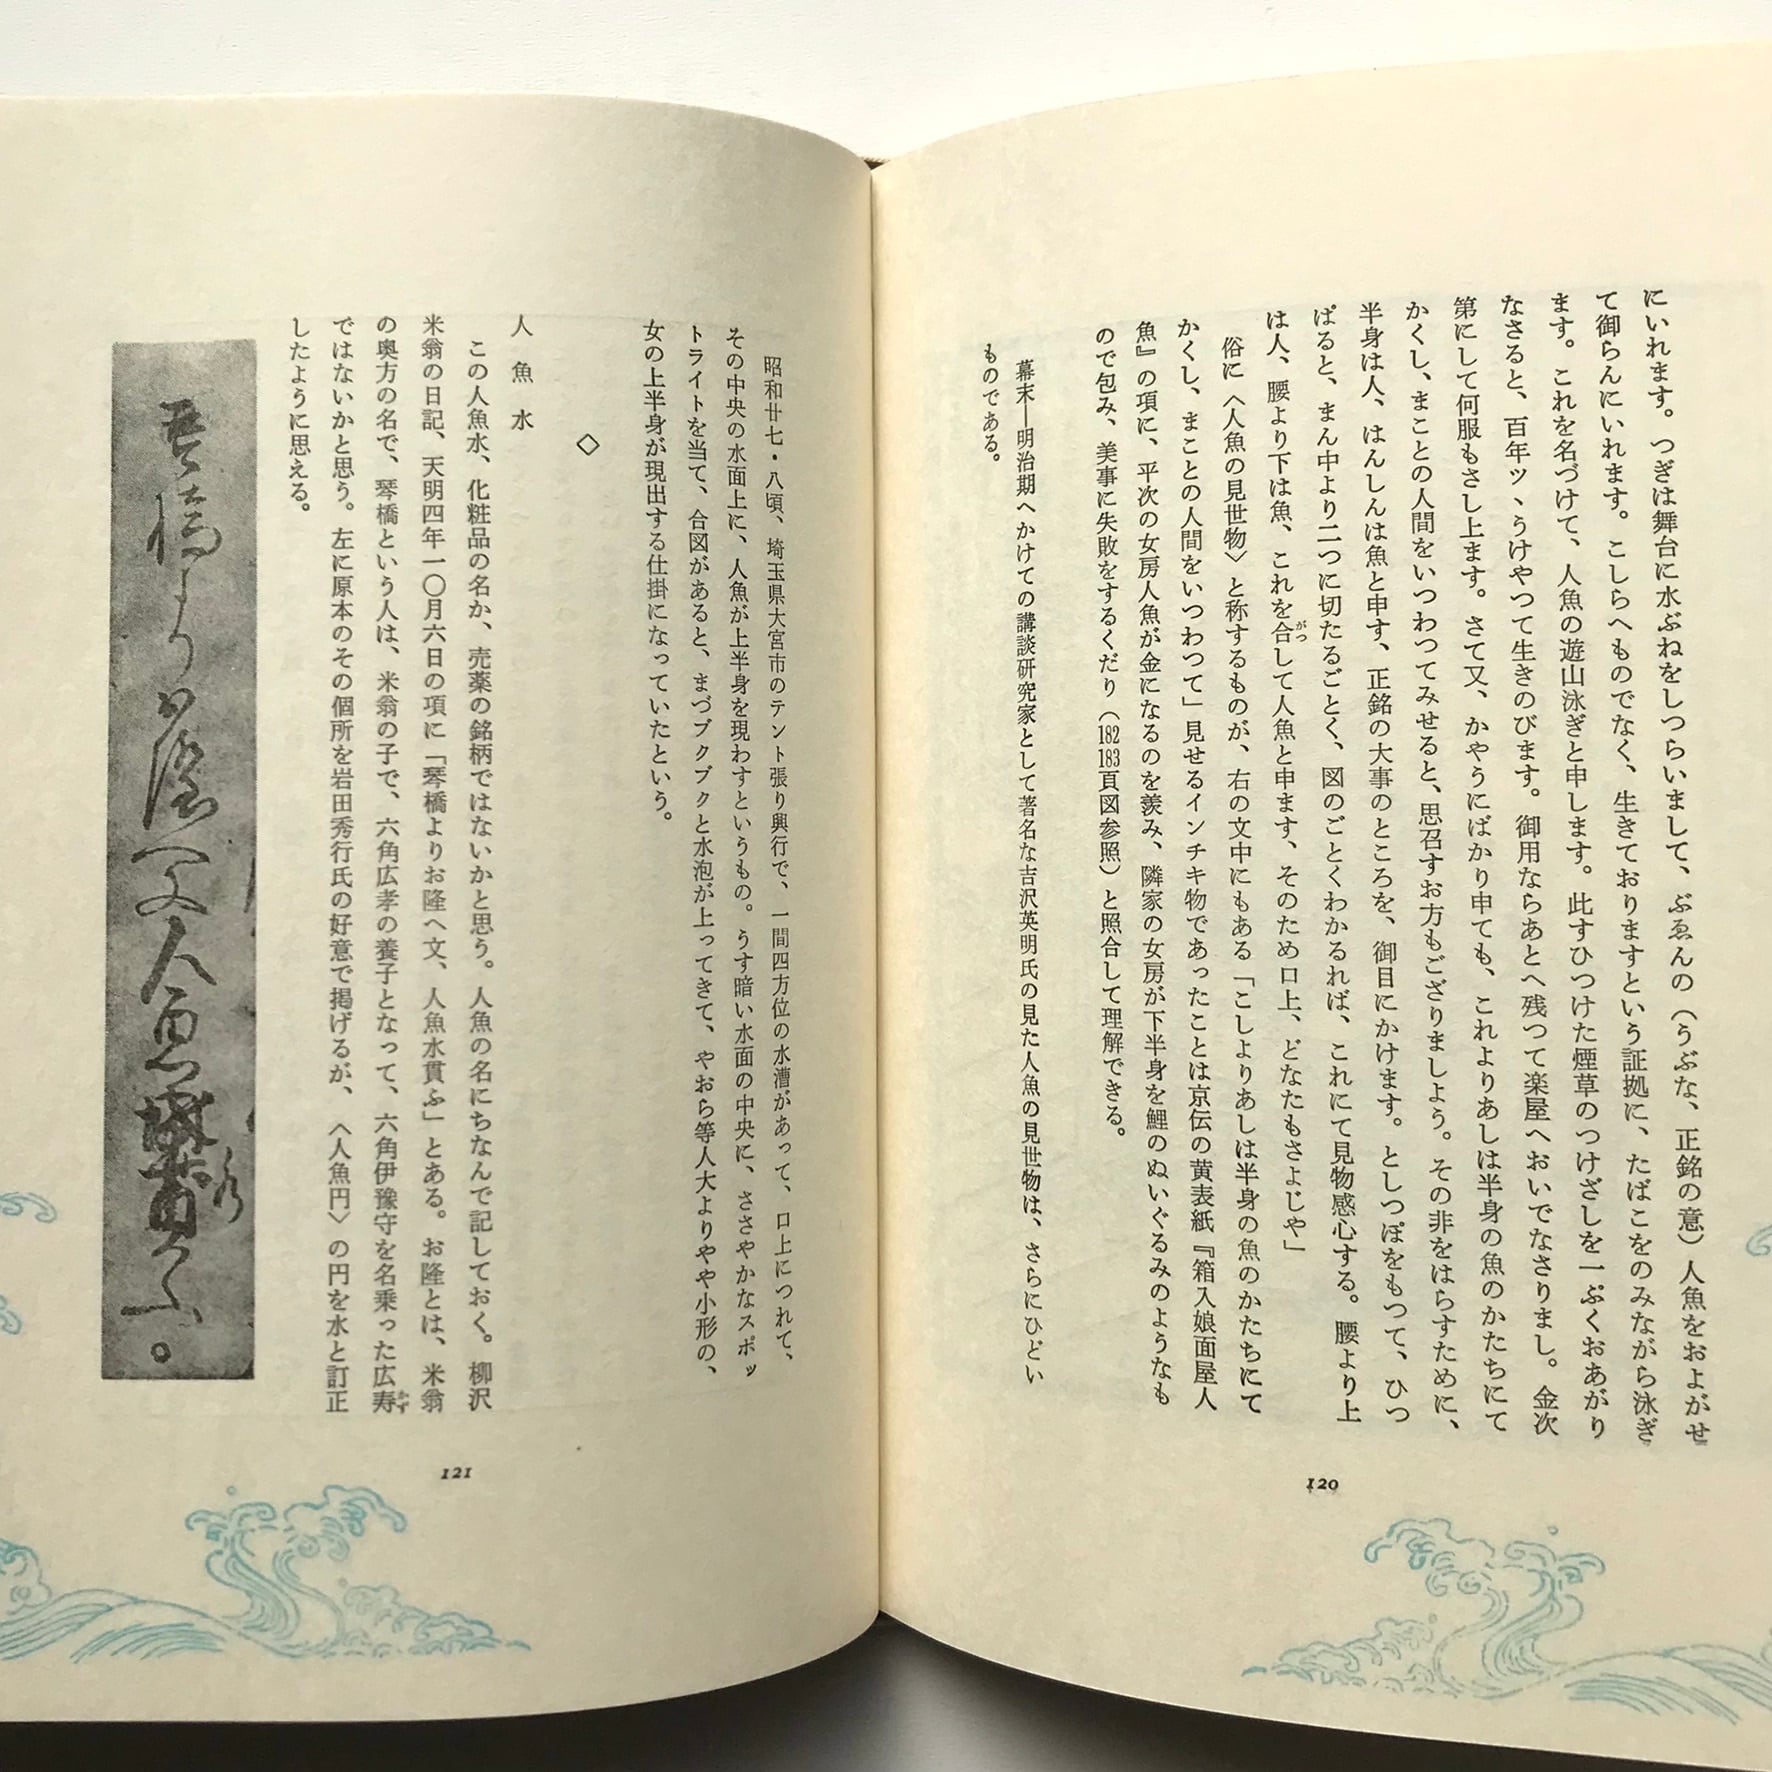 にいれます。つぎは舞台に水ぶねをしつらいまして、ぶゑんの（うぶな、正銘の意）人魚をおよがせ
て御らんにいれます。こしらへものでなく、生きておりますという証拠に、たばこをのみながら泳ぎ
ます。これを名づけて、人魚の遊山泳ぎと申します。此すひつけた煙草のつけざしを一ぷくおあがり
なさると、百年ツヽうけやつて生きのびます。御用ならあとへ残つて楽屋へおいでなさりまし。金次
第にして何服もさし上ます。さて又、かやうにばかり申ても、これよりあしは半身の魚のかたちにて
かくし、まことの人間をいつわつてみせると、思召すお方もござりましよう。その非をはらすために、
半身は人、はんしんは魚と申す、正銘の大事のところを、御目にかけます。としつぽをもつて、ひつ
ぱると、まん中より二つに切たるごとく、図のごとくわかるれば、これにて見物感心する。腰より上
は人、腰より下は魚、これを合して人魚と申ます、そのため口上、どなたもさよじや」
がつ
俗に〈人魚の見世物〉と称するものが、右の文中にもある「こしよりあしは半身の魚のかたちにて
かくし、まことの人間をいつわつて」見せるインチキ物であったことは京伝の黄表紙『箱入娘面屋人
魚』の項に、平次の女房人魚が金になるのを羨み、隣家の女房が下半身を鯉のぬいぐるみのようなも
ので包み、美事に失敗をするくだり（182 183頁図参照）と照合して理解できる。
幕末―明治期へかけての講談研究家として著名な吉沢英明氏の見た人魚の見世物は、さらにひどい
ものである。
120
昭和廿七・八頃、埼玉県大宮市のテント張り興行で、一間四方位の水漕があって、口上につれて、
その中央の水面上に、人魚が上半身を現わすというもの。うす暗い水面の中央に、ささやかなスポッ
トライトを当て、合図があると、まづブクブクと水泡が上ってきて、やおら等人大よりやや小形の、
女の上半身が現出する仕掛になっていたという。
◇
人魚水
この人魚水、化粧品の名か、売薬の銘柄ではないかと思う。人魚の名にちなんで記しておく。柳沢
米翁の日記、天明四年一〇月六日の項に「琴橋よりお隆へ文、人魚水貫ふ」とある。お隆とは、米翁
の奥方の名で、琴橋という人は、米翁の子で、六角広孝の養子となって、六角伊豫守を名乗った広寿
かず
ではないかと思う。左に原本のその個所を岩田秀行氏の好意で掲げるが、〈人魚円〉の円を水と訂正
したように思える。
121